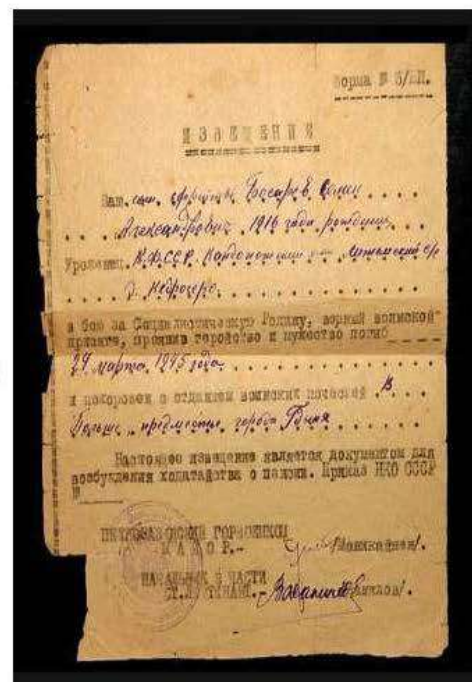 Форма № 5/БП.
ИЗВЕЩЕНИЕ
Ваш сын, ефрейтор Босарев
Александрович 1916 года рождения
Уроженец К.Ф.ССР. с/с
д.
в бою за Социалистическую Родину, верный воинской
присяге, проявив геройство и мужество погиб
29 марта 1945 года
и похоронен с отданием воинских почестей В
Польше, предместье города Гдыня
Настоящее извещение является документом для
возбуждения ходатайства о пенсии. Приказ НКО СССР
№
ПЕТРОЗАВОДСКИЙ ГОРВОЕНКОМ
МАЙОР.-
НАЧАЛЬНИК ЧАСТИ
СТ.ЛЕЙТЕНАНТ.-